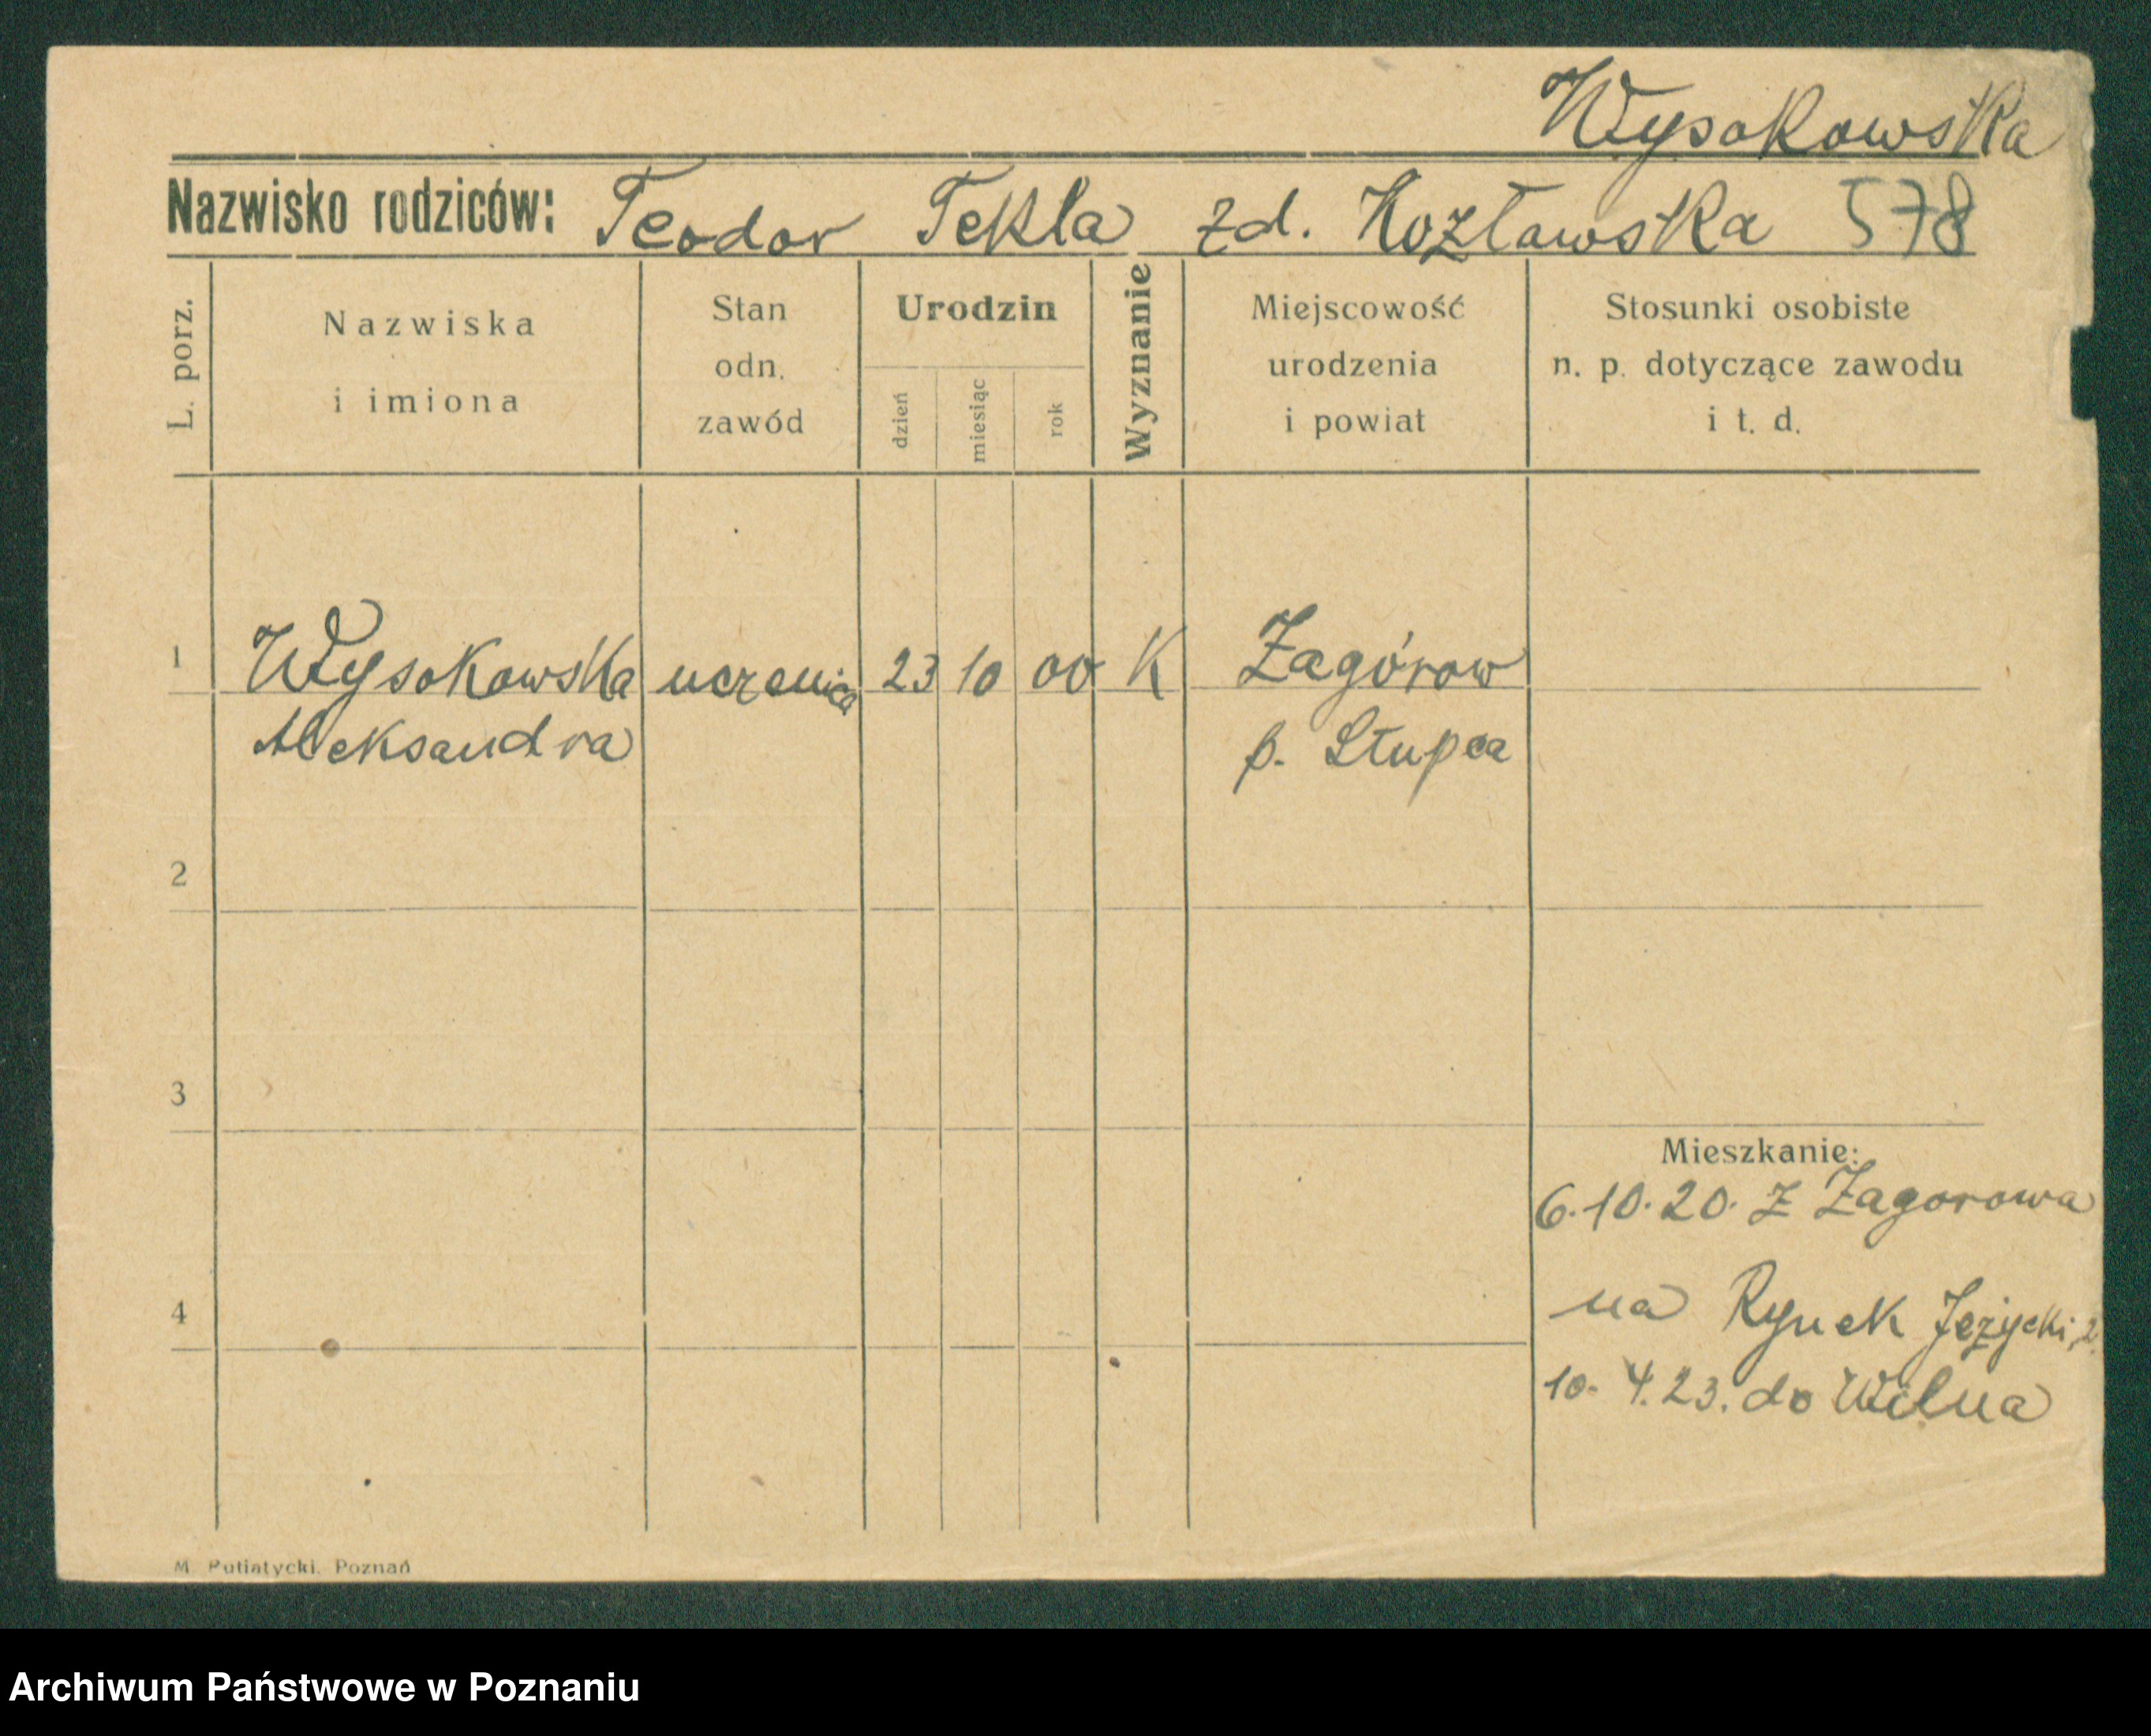 Wysokowska
Nazwisko rodziców: Teodor Tekla zd. Kozłowska 578
L. porz.
Nazwiska
i imiona
Stan
odn.
zawód
Urodzin
dzień
miesiąc
rok
Wyznanie
Miejscowość
urodzenia
i powiat
Stosunki osobiste
n. p. dotyczące zawodu
i t. d.
1 Wysokowska uczenica 23 10 00 K Zagórow
Aleksandra p. Słupca
2
3
Mieszkanie:
6.10.20. z Zagorowa
4
na Rynek Jeżycki 2.
10.4.23. do Wilna
M. Putiatycki. Poznań
Archiwum Państwowe w Poznaniu